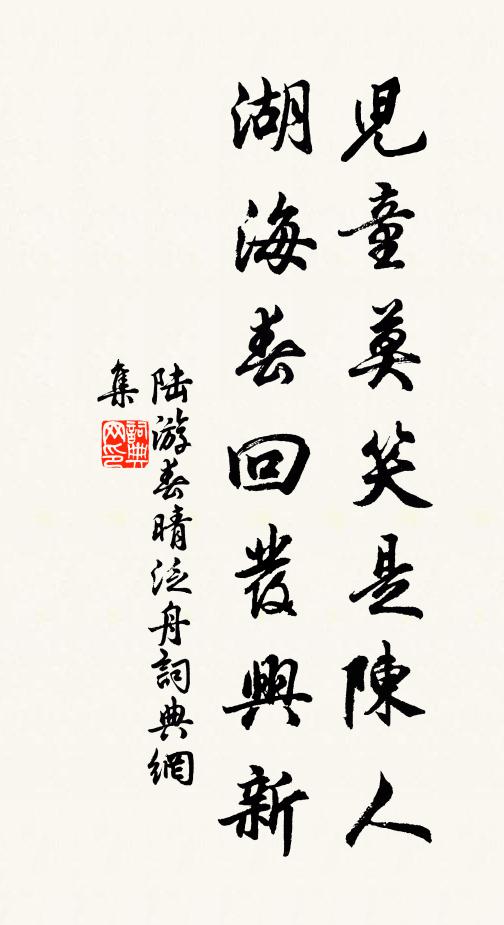 兒童莫笑是陳人
湖海春回發興新
陆游春晴泛舟詞典網
集
詞典
网印